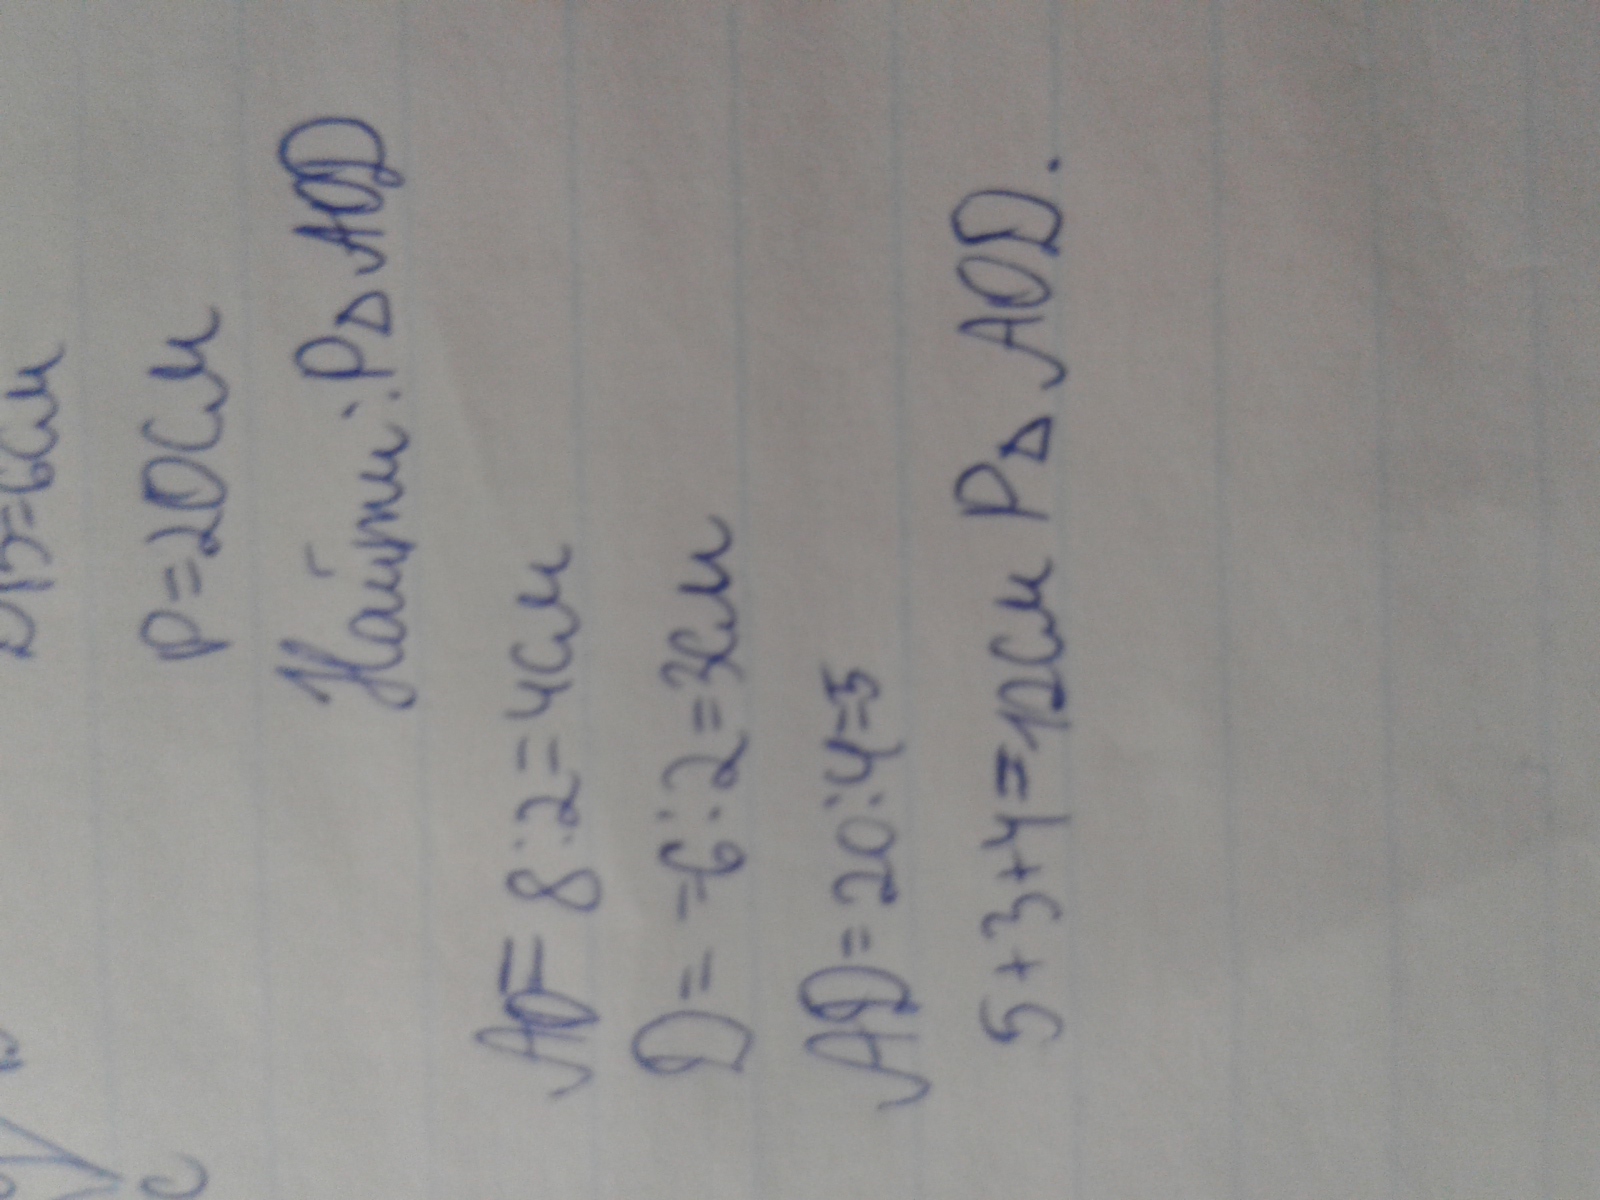 DB=6см
P=20см
Найти: P△AOD
C
AO=8:2=4см
D= =6:2=3см
AD=20:4=5
5+3+4=12см P△AOD.